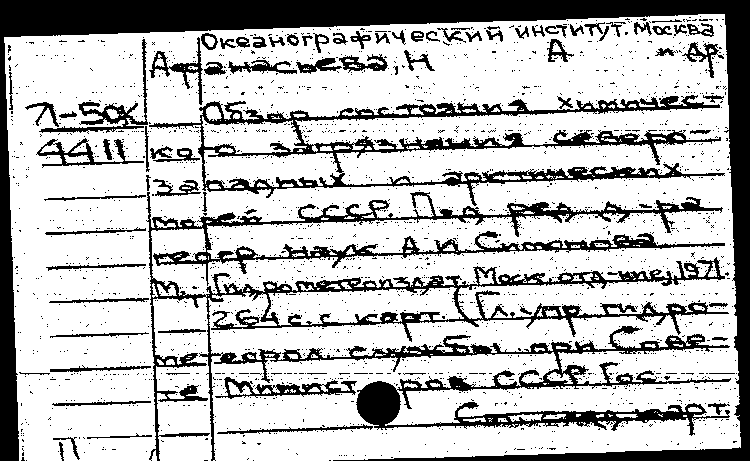 Океанографический институт. Москва
Афанасьева, Н А и др.
71-50к Обзор состояния химичес-
4411 кого загрязнения северо-
западных и арктических
морей СССР. Под ред д-ра
геогр. наук А И Симонова
М., Гидрометеоиздат, Моск. отд-ние, 1971.
264 с. с карт. (Гл. упр. гидро-
метеорол. службы при Сове-
те Министров СССР. Гос.
См. след. карт.